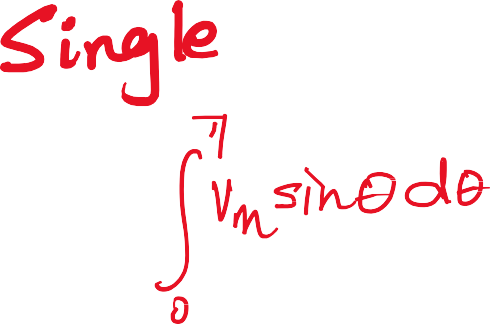 Single
∫₀^π Vm sinθ dθ